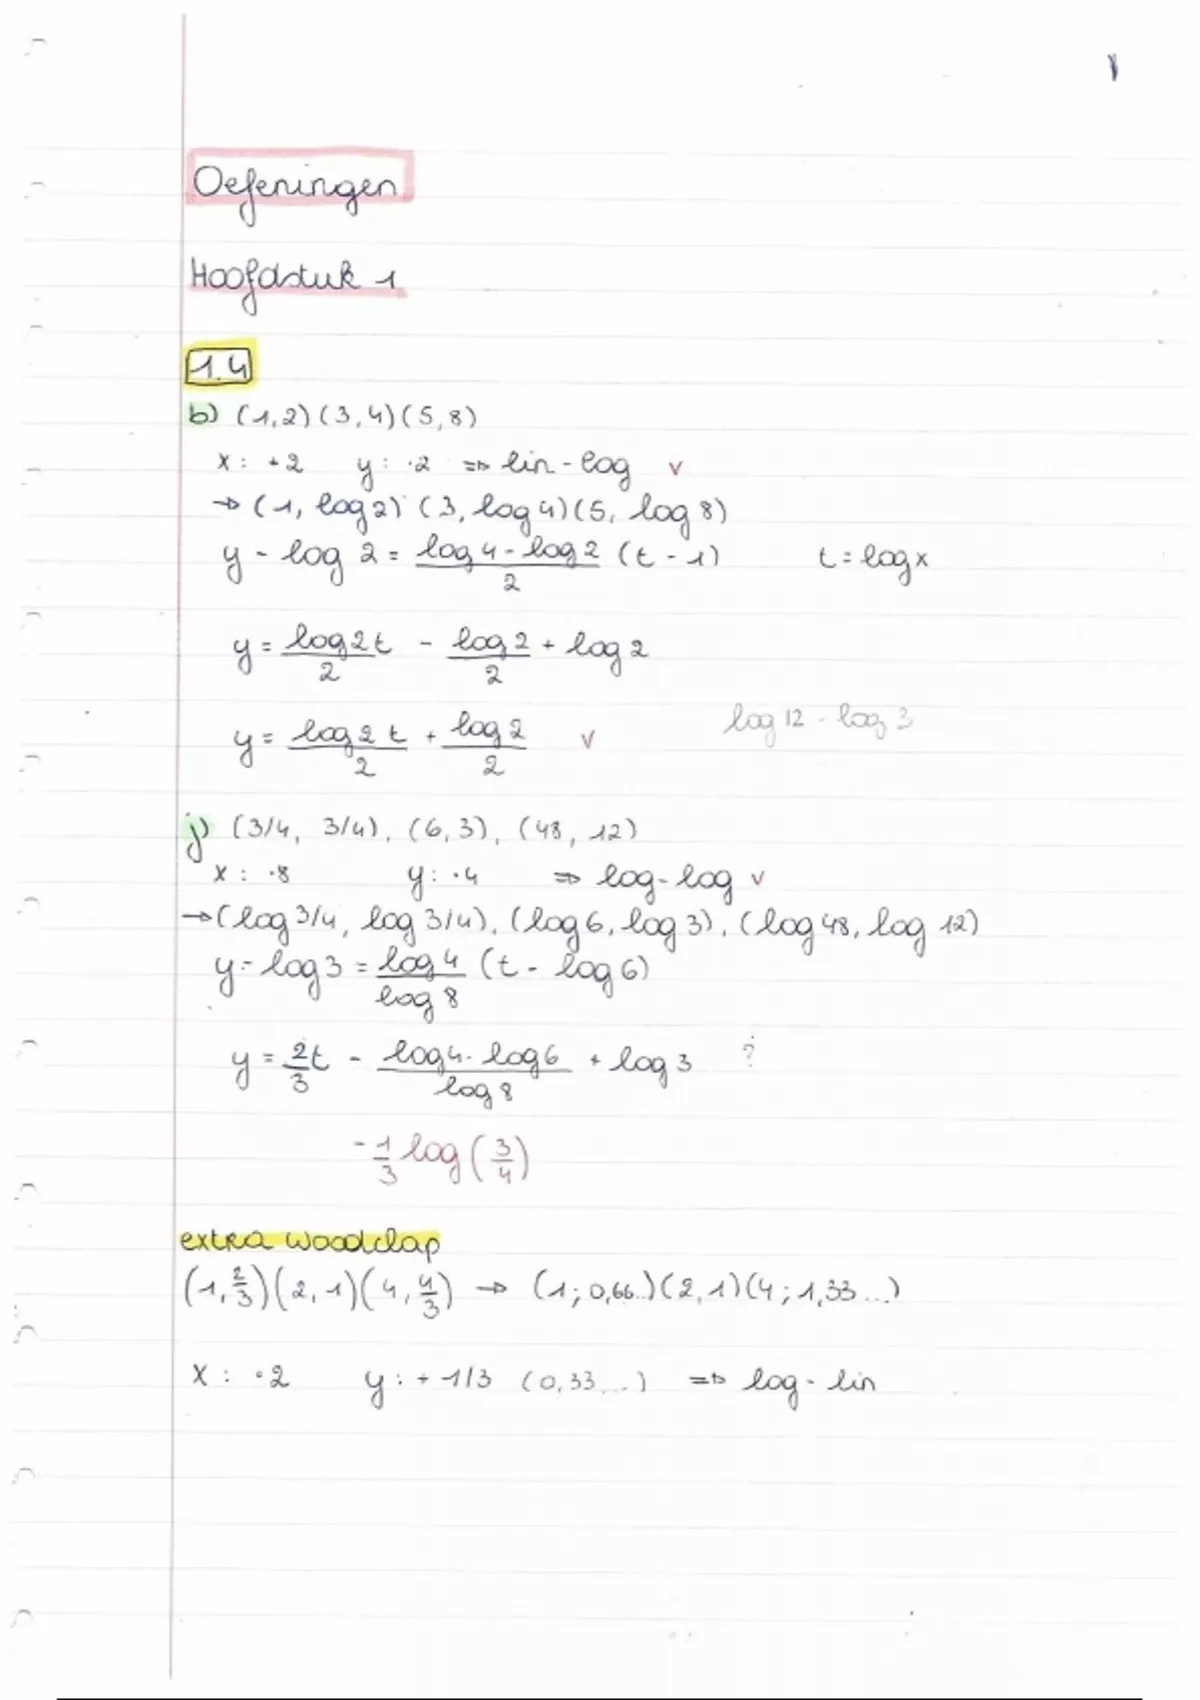 1
Oefeningen
Hoofdstuk 1
1.4
b) (1,2) (3,4) (5,8)
x: +2 y: ·2 => lin-log v
→ (1, log 2) (3, log 4) (5, log 8)
y - log 2 = (log 4 - log 2)/2 (t - 1) t = log x
y = log 2 t/2 - log 2/2 + log 2
y = log 2 t/2 + log 2/2 v log 12 - log 3
j) (3/4, 3/4), (6,3), (48, 12)
x: ·8 y: ·4 => log-log v
→ (log 3/4, log 3/4), (log 6, log 3), (log 48, log 12)
y - log 3 = log 4/log 8 (t - log 6)
y = 2/3 t - (log 4 · log 6)/log 8 + log 3 ?
- 1/3 log (3/4)
extra woodclap
(1, 2/3) (2, 1) (4, 4/3) → (1; 0,66..) (2, 1) (4; 1,33...)
x: ·2 y: + 1/3 (0,33...) => log-lin